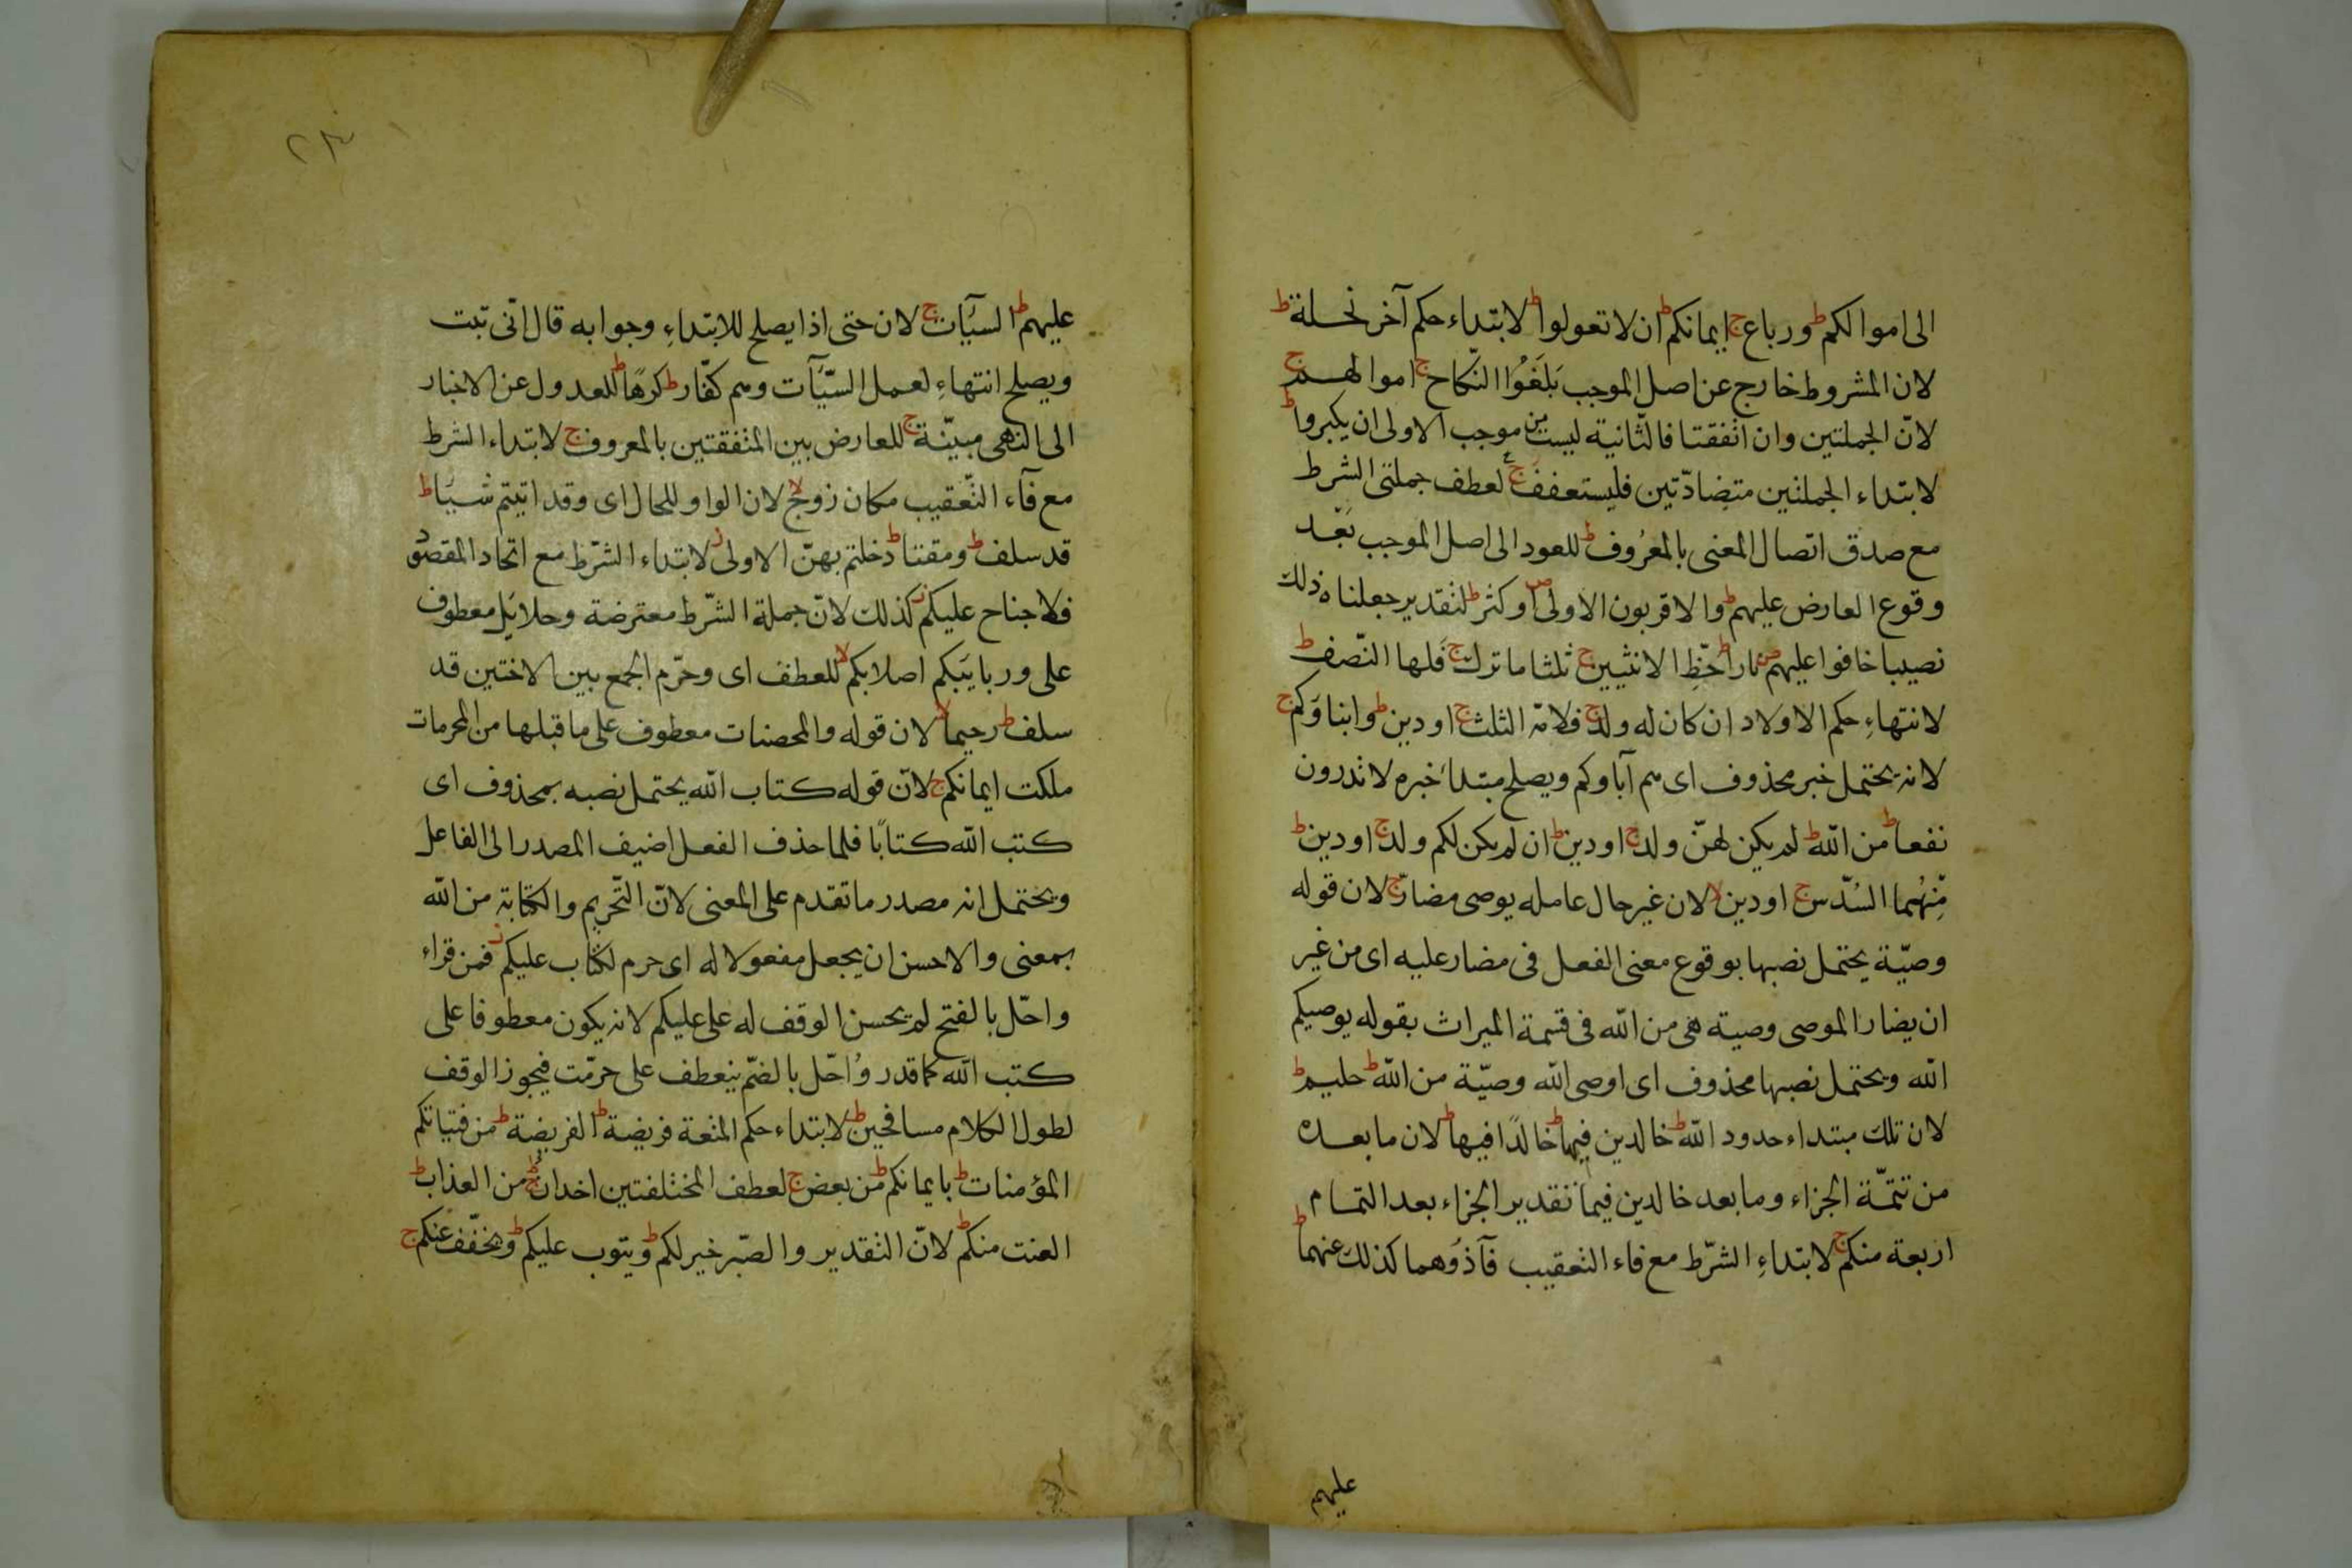 الى اموالكم ط ورباع ج ايمانكم ط ان لا تعولوا ط لابتداء حكم آخر نحلة ط
لان المشروط خارج عن اصل الموجب بَلَغُوا النّكاح ج اموالهم ج
لانّ الجملتين وان اتفقتا فالثّانية ليست من موجب الاولى ان يكبروا ط
لابتداء الجملتين متضادّتين فليستعفف ج لعطف جملتى الشرط
مع صدق اتصال المعنى بالمعرُوف ط للعود الى اصل الموجب بَعْد
وقوع العارض عليهم ط والاقربون الاولى ص او كثر ط لتقدير جعلناه ذلك
نصيبا خافوا عليهم ص نارا ط حَظِّ الانثيين ج ثلثا ما ترك ج فلها النّصف ط
لانتهاءِ حكم الاولاد ان كان له ولد ج فلامّه الثلث ج او دين ط وابناؤكم ج
لانه يحتمل خبر محذوف اى هم آباوكم ويصلح مبتدا خبره لا تدرون
نفعا ط من اللّه ط لم يكن لهنّ ولد ج او دين ط ان لم يكن لكم ولد ج او دين ط
مِّنْهُما السُّدس ج او دين لا لان غير حال عامله يوصى مضارّ ج لان قوله
وصيّة يحتمل نصبها بوقوع معنى الفعل فى مضار عليه اى من غير
ان يضار الموصى وصية هى من اللّه فى قسمة الميراث بقوله يوصيكم
اللّه ويحتمل نصبها محذوف اى اوصى اللّه وصيّة من اللّه ط حليم ط
لان تلك مبتداء حدود اللّه ط خالدين فيها ط خالدًا فيها ط لان ما بعده
من تتمّة الجزاء وما بعد خالدين فيها تقدير الجزاء بعد التمام
اربعة منكم ج لابتداءِ الشّرط مع فاء التعقيب فآذُوهما كذلك عنهما ط
عليهم
٢٣
عليهم ط السيّآت ج لان حتى اذا يصلح للابتداءِ وجوابه قال انّى تبت
ويصلح انتهاءِ لعمل السّيّآت وهم كفّار ط كرهًا ط للعدول عن الاخبار
الى النهى مبيّنة ج للعارض بين المتفقتين بالمعروف ج لابتداء الشرط
مع فآء التّعقيب مكان زوج لا لان الواو للحال اى وقد اتيتم شيئا ط
قد سلف ط ومقتا ط دخلتم بهنّ الاولى ز لابتداء الشّرط مع اتحاد المقصود
فلا جناح عليكم ز كذلك لانّ جملة الشّرط معترضة وحلايل معطوف
على وربايبكم اصلابكم لا للعطف اى وحرّم الجمع بين الاختين قد
سلف ط رحيما لا لان قوله والمحصنات معطوف على ما قبلها من المحرمات
ملكت ايمانكم ج لانّ قوله كتاب اللّه يحتمل نصبه بمحذوف اى
كتب اللّه كتابًا فلما حذف الفعل اضيف المصدر الى الفاعل
ويحتمل انه مصدر ما تقدم على المعنى لانّ التّحريم والكتابة من اللّه
بمعنى والاحسن ان يجعل مفعولا له اى حرم لكتاب عليكم ز فمن قراء
واحّل بالفتح لم يحسن الوقف له على عليكم لانه يكون معطوفا على
كتب اللّه كما قدر وُاحّل بالضّم ينعطف على حرّمت فيجوز الوقف
لطول الكلام مسافحين ط لابتداء حكم المتعة فريضة ط الفريضة ط من فتياتكم
المؤمنات ط بايمانكم ط من بعض ج لعطف المختلفتين اخدان ج من العذاب ط
العنت منكم ط لانّ التقدير والصّبر خير لكم ط ويتوب عليكم ط ويخفّف عنكم ج